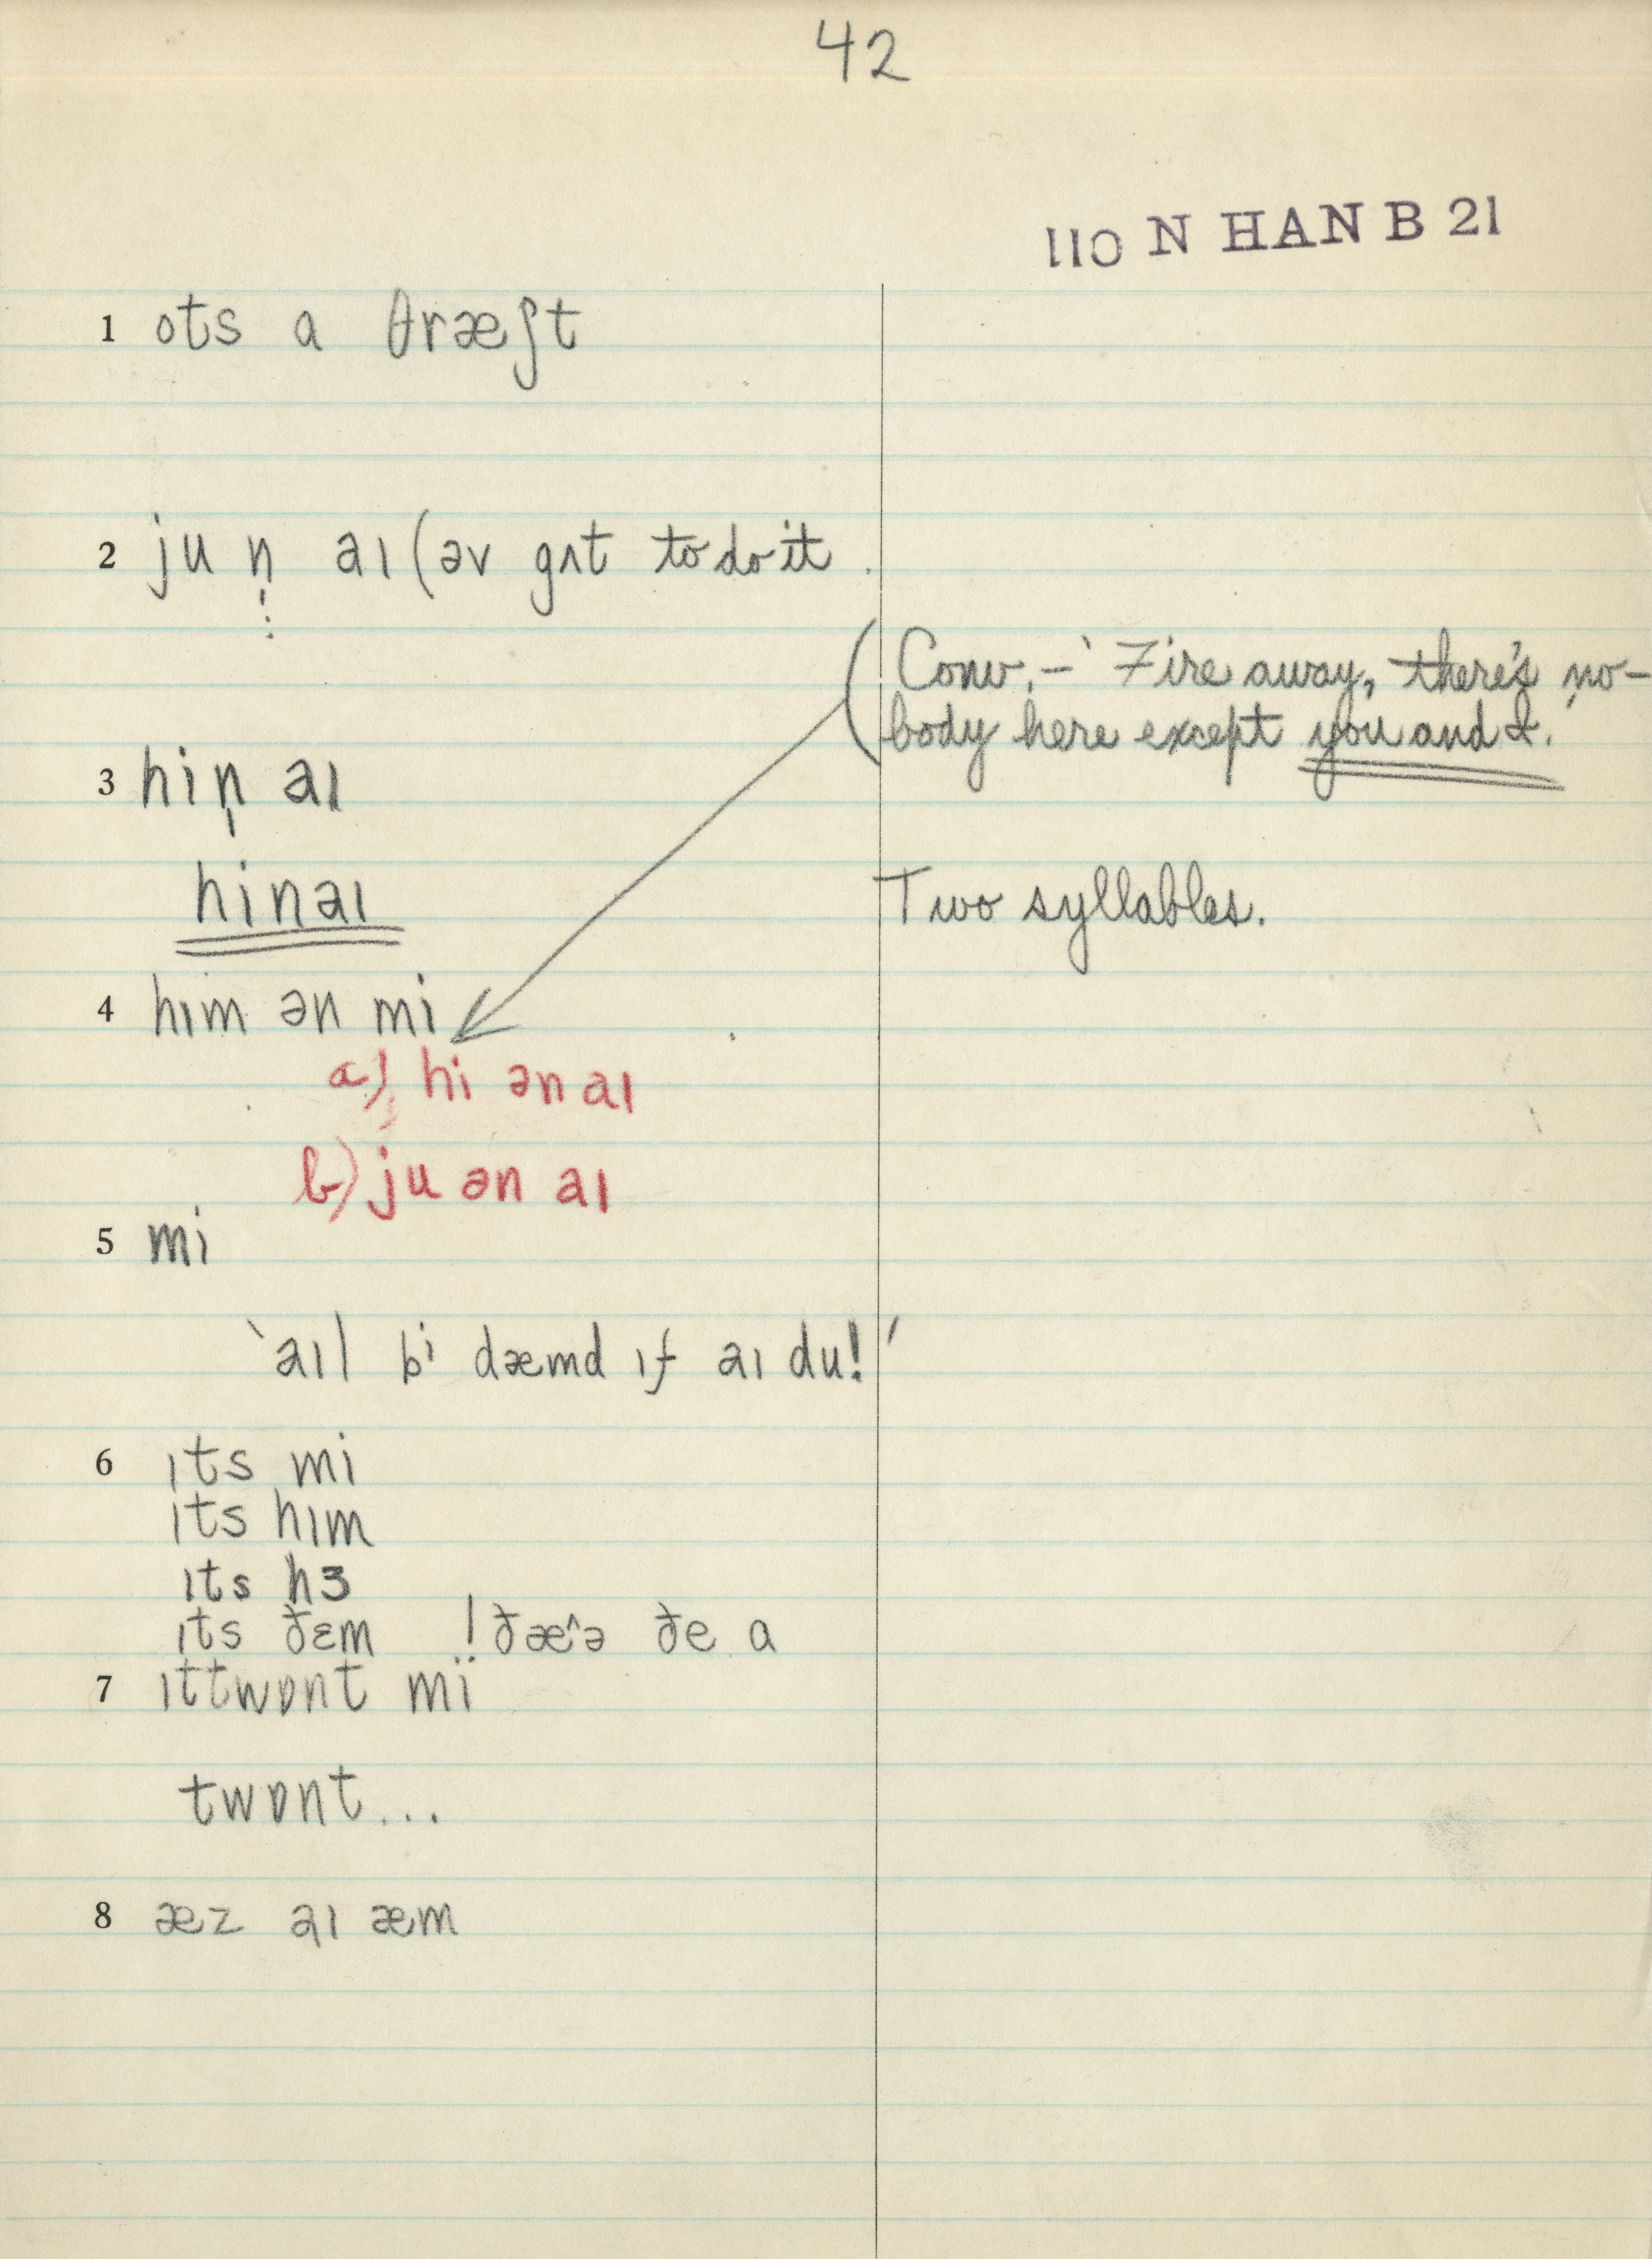 42
110 N HAN B 21
1 ots a θræʃt
2 ju n̩ aɪ (əv gʌt to do it.
(Conv. – ‘Fire away, there's no-
body here except you and I.’
3 hin̩ aɪ
hinaɪ
Two syllables.
4 hɪm ən mi
a) hi ən aɪ
b) ju ən aɪ
5 mi
‘aɪl bi dæmd ɪf aɪ du!’
6 ɪts mi
ɪts hɪm
ɪts hɜ
ɪts ðɛm ! ðæ^ə ðe a
7 ɪttwɒnt mï
twɒnt...
8 æz aɪ æm